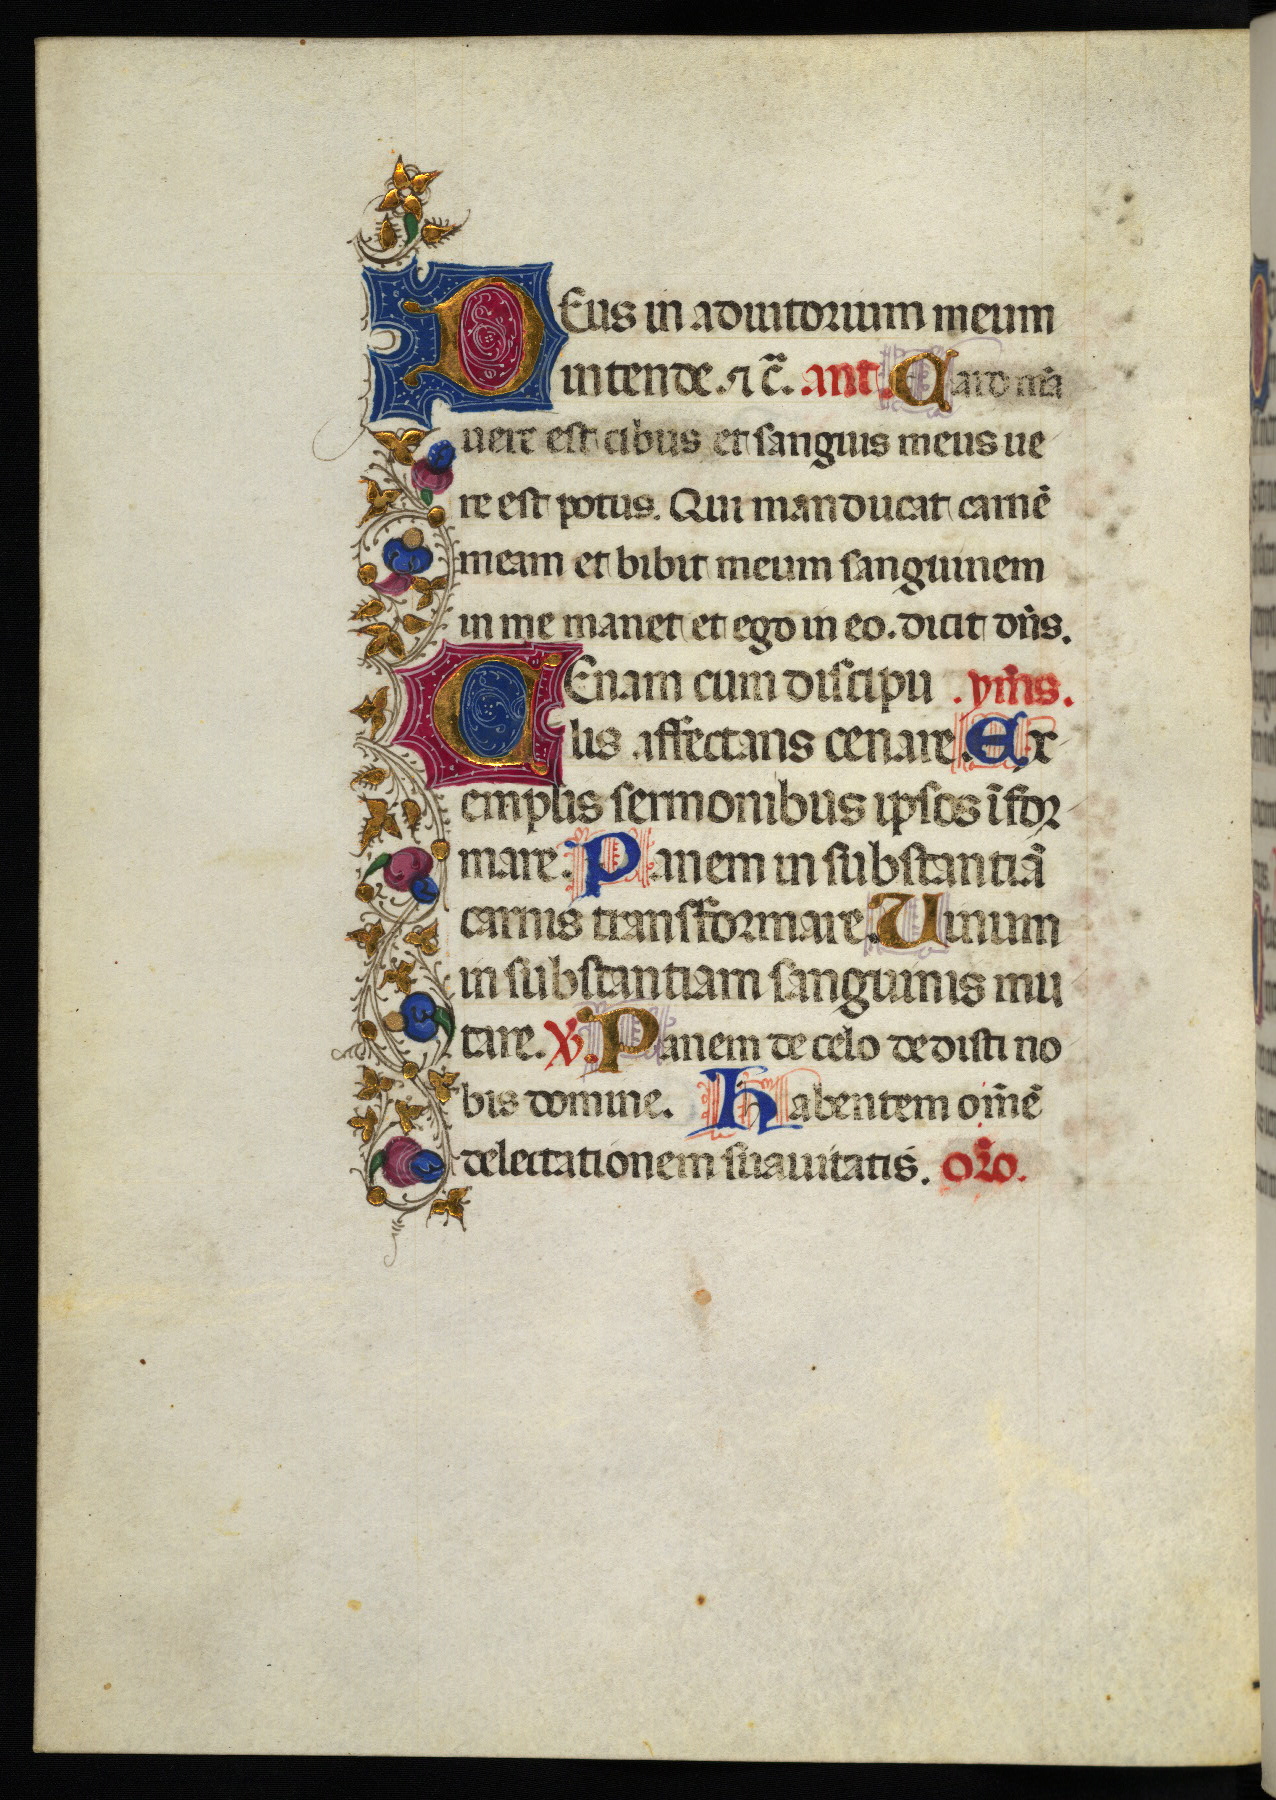 DEus in adiutorium meum
intende. ⁊ c̃. ant. Caro m̃a
uere est cibus et sanguis meus ue
re est potus. Qui manducat carnē
meam et bibit meum sanguinem
in me manet et ego in eo. dicit dn̄s.
CEnam cum discipu .ym̄s.
lis affectans cenare. Ex
emplis sermonibus ipsos īfor
mare. Panem in substantiā
carnis transformare. Uinum
in substantiam sanguinis mu
tare. V. Panem de celo dedisti no
bis domine. Habentem om̄ē
delectationem suauitatis. or̄o.